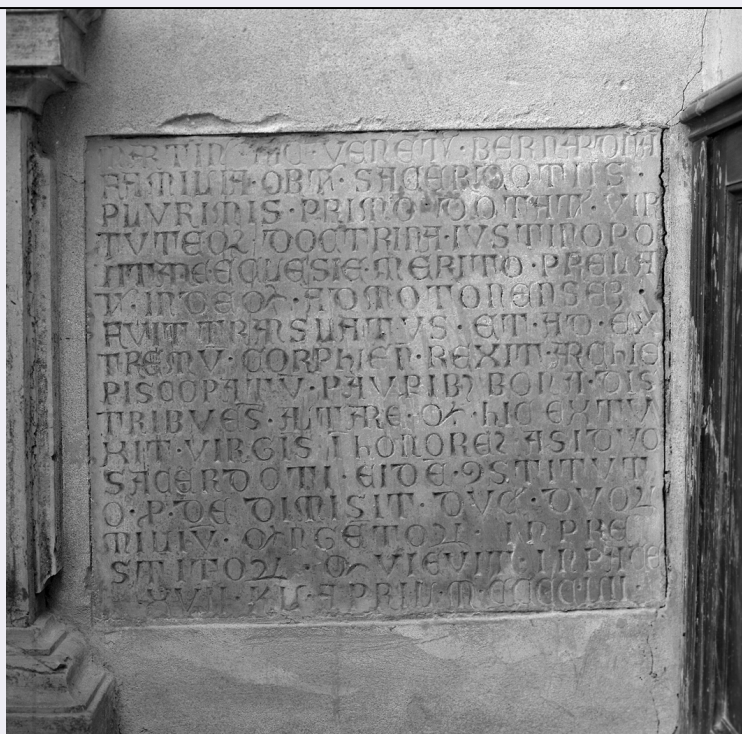 MARTIN · HIC · VENETV · BERNARDINA
FAMILIA · OBIT · SACERDOTIIS ·
PLVRIMIS · PRIMO · DOTAT · VIR
TVTEQꝫ DOCTRINA · IVSTINOPO
LITANE · ECCLESIE · MERITO · PRELA
T · INDE
AVIT TRANSLATVS · ET · AD · EX
TREMV · CORPHIEN · REXIT · ARCHIE
PISCOPATV · PAVPIBꝫ BONA · DIS
TRIBVES · ALTARE · HIC EXTV
XIT · VIRGIS I HONORE ASIDVO
SACERDOTI · EIDE · ꝯSTITVT
O · P · DE DIMISIT · DVC · DVOꝜ
MILIV · IN PRE
STITOꝜ · VIEVIT · IN PACE
XVII · KL · APRIL · M · CCCCLIII ·